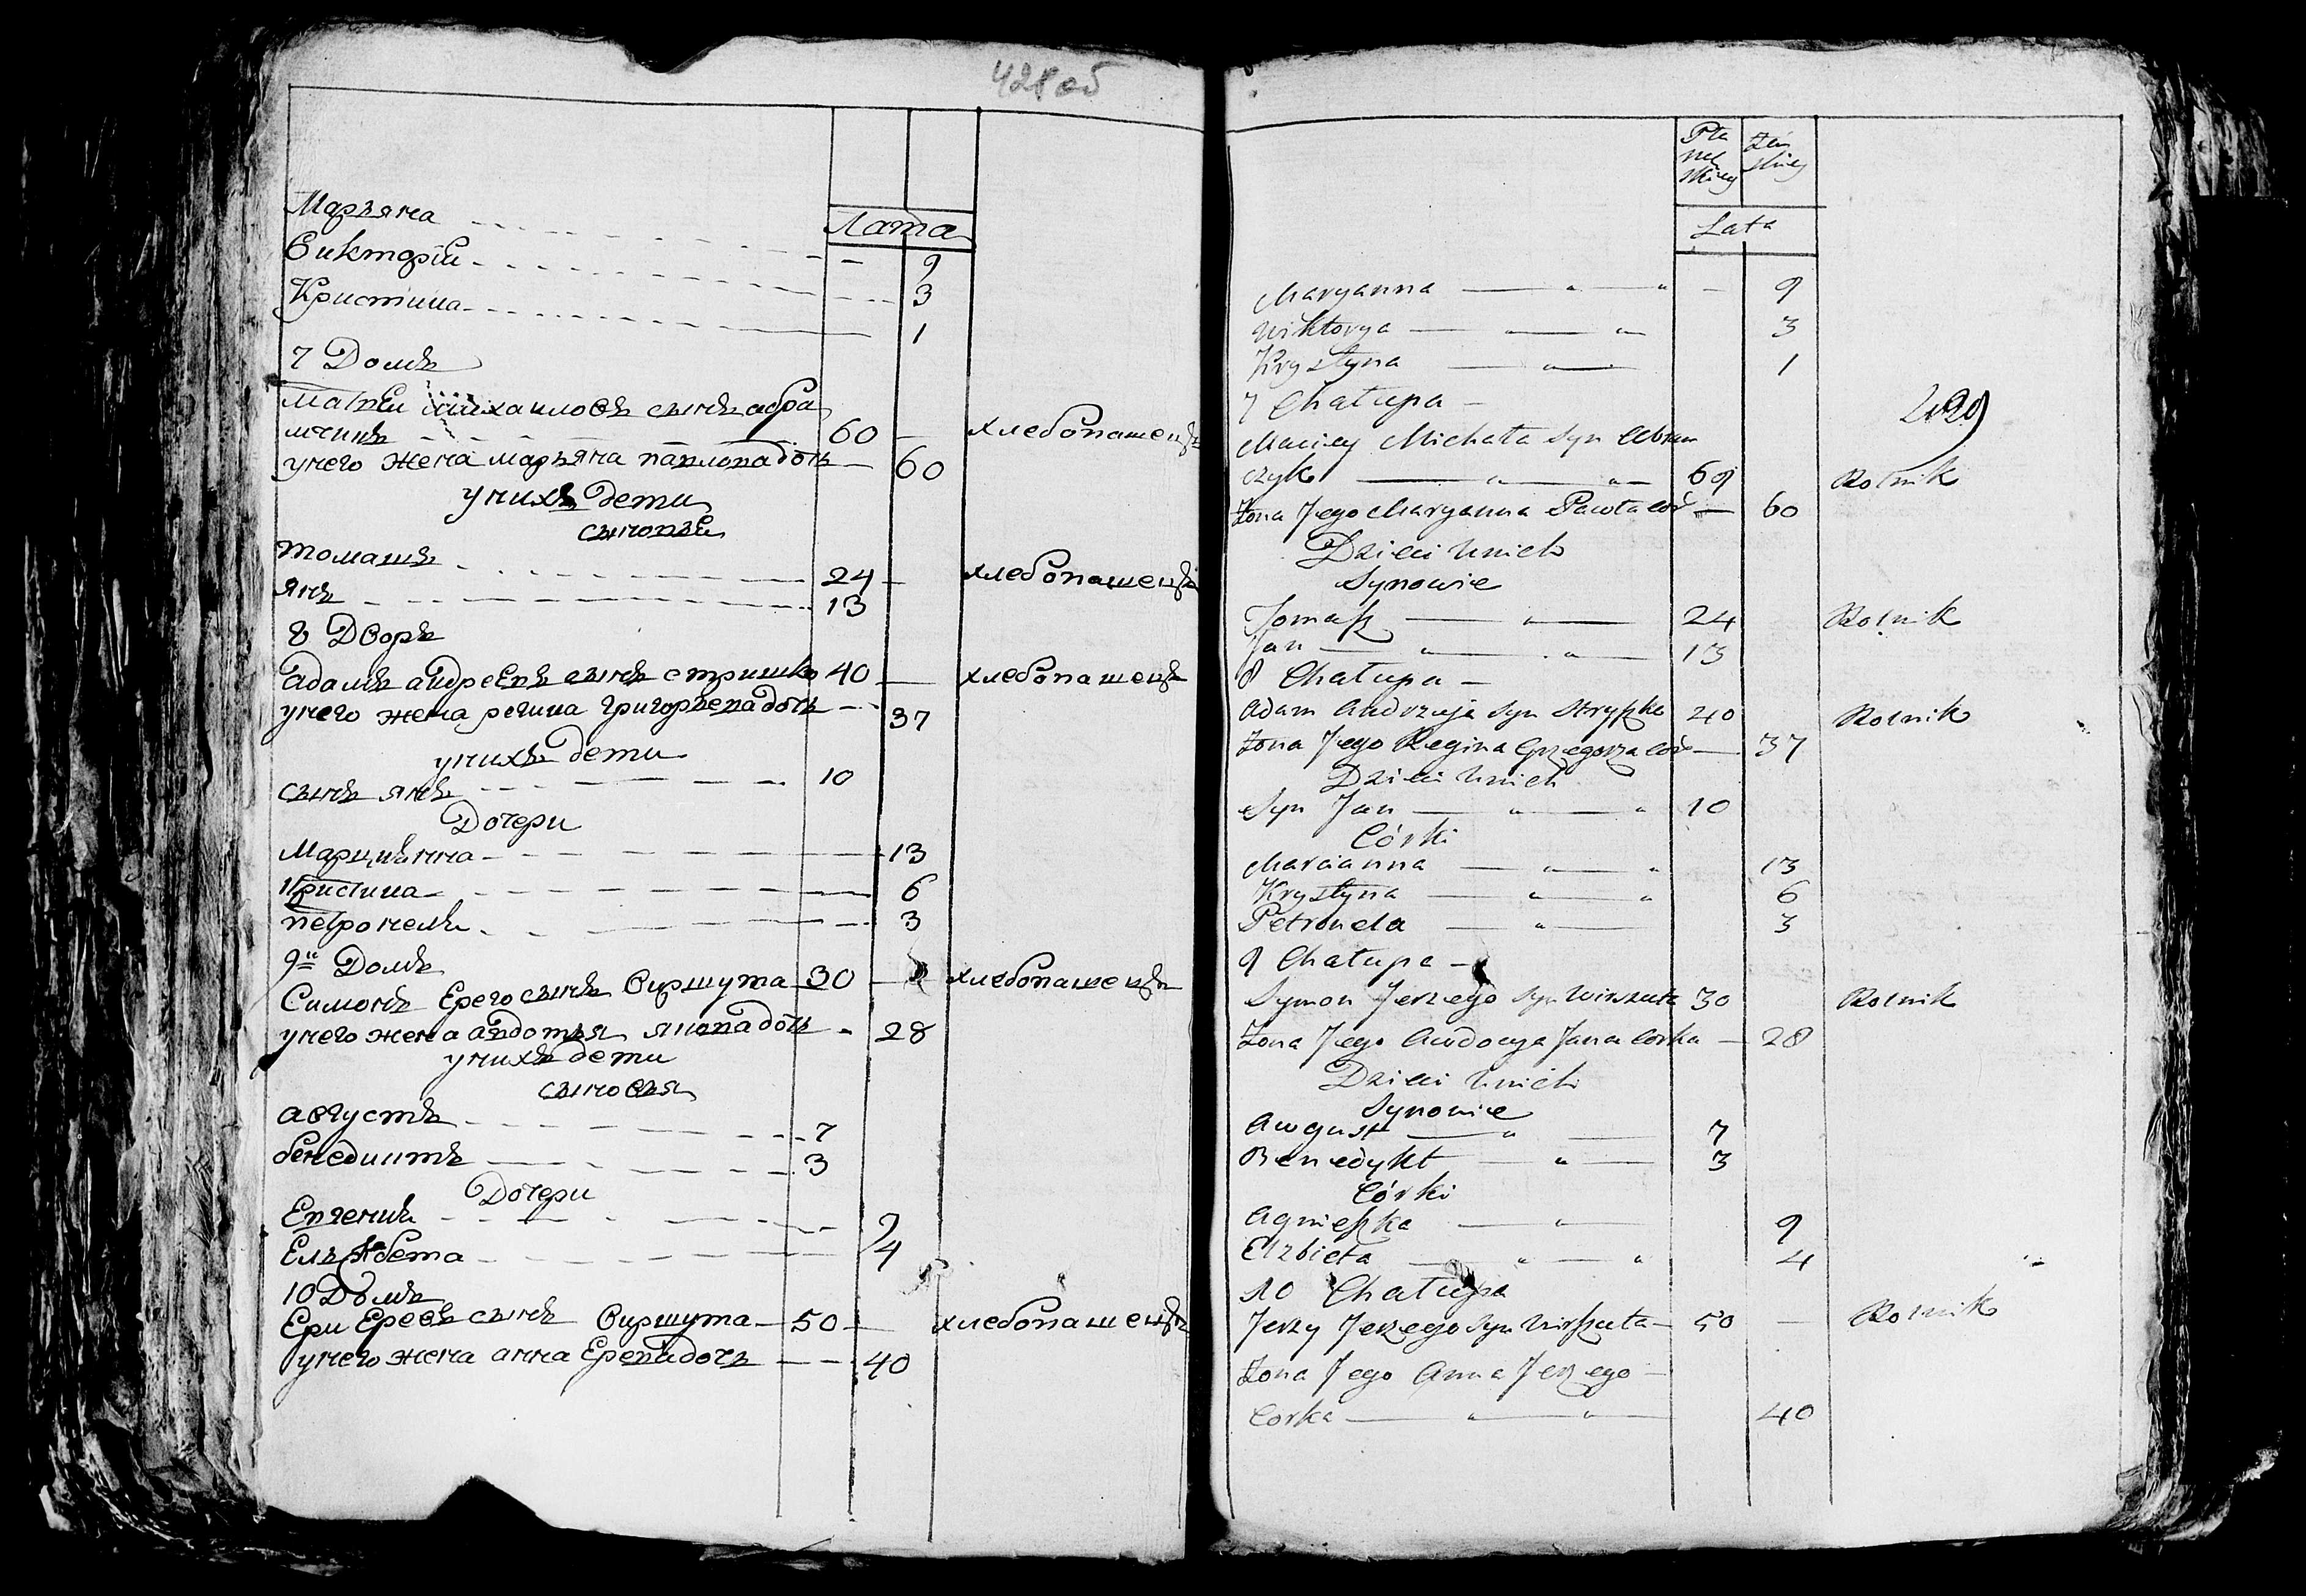 428 об
Лата
Марьяна 9
Викторіи 3
Кристина 1
7 Домъ
Матеи михаиловъ сынъ абра
мчикъ 60 хлебопашецъ
унего жена марьяна павловадочь 60
унихъ дети
сыновьи
томашъ 24 хлебопашецъ
янъ 13
8 Дворъ
адамъ андреевъ сынъ стришко 40 хлебопашецъ
унего жена регина григорьевадочь 37
унихъ дети
сынъ янъ 10
Дочери
Марциянна 13
Кристина 6
петронеля 3
9й Домъ
Симонъ Ерего сынъ Виршута 30 хлебопашецъ
унего жена авдотья яновадочь 28
унихъ дети
сыновья
августъ 7
бенедиктъ 3
Дочери
Евгения 9
Ельжбета 4
10 Домъ
Ери Еревъ сынъ Виршута 50 хлебопашецъ
унего жена анна Еревадочь 40
Lata
Maryanna 9
Wiktorya 3
Krystyna 1
7 Chałupa
429
Maciey Michała Syn Abram
czyk 69 Rolnik
Żona Jego Maryanna Pawła cór 60
Dzieci Unich
Synowie
Tomasz 24 Rolnik
Jan 13
8 Chałupa
Adam Andrzeja Syn Stryszko 40 Rolnik
Żona Jego Regina Grzegorza cór 37
Dzieci Unich
Syn Jan 10
Córki
Marcianna 13
Krystyna 6
Petronela 3
9 Chałupa
Symon Jerzego Syn Wirszuta 30 Rolnik
Żona Jego Awdocya Jana Corka 28
Dzieci Unich
Synowie
August 7
Benedykt 3
Córki
Agnieszka 9
Elzbieta 4
10 Chałupa
Jerzy Jerzego Syn Wirszuta 50 Rolnik
Żona Jego Anna Jerzego
Corka 40